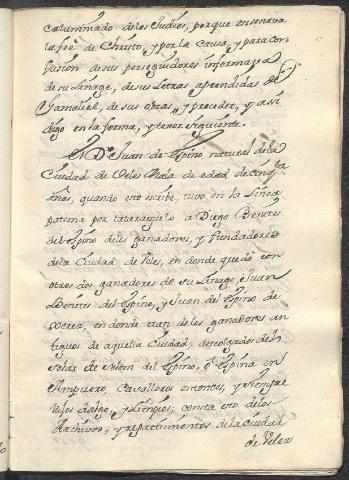 calumniado de los Judios, porque enseñava
la feè de Christo, y por la Causa, y para con
fusion de sus perseguidores informava
de su Linage, de sus Letras aprendidas de
Gamaliel, de sus obras, y proceder, y assi
digo en la forma, y tenor siguiente.
El Dr. Juan de Espino natural de la
Ciudad de Velez Mala de edad de cinqta
años, quando esto escribe, tuvo en la Linea
paterna por tatarabuelo a Diego Benites
del Espino de los ganadores, y fundadores
de la Ciudad de Velez, en donde quedó con
otros dos ganadores de su Linage Juan
Benites del Espino, y Juan del Espino de
Xerez; en donde eran de los ganadores an
tiguos de aquella Ciudad, descolgados del
solar de del Espino, ò Espina en
Ampuero, Cavalleros entonces, y siempre
hijos dalgo, y Limpios; consta esto de los
Archivos, y repartimientos de la Ciudad
de Velez